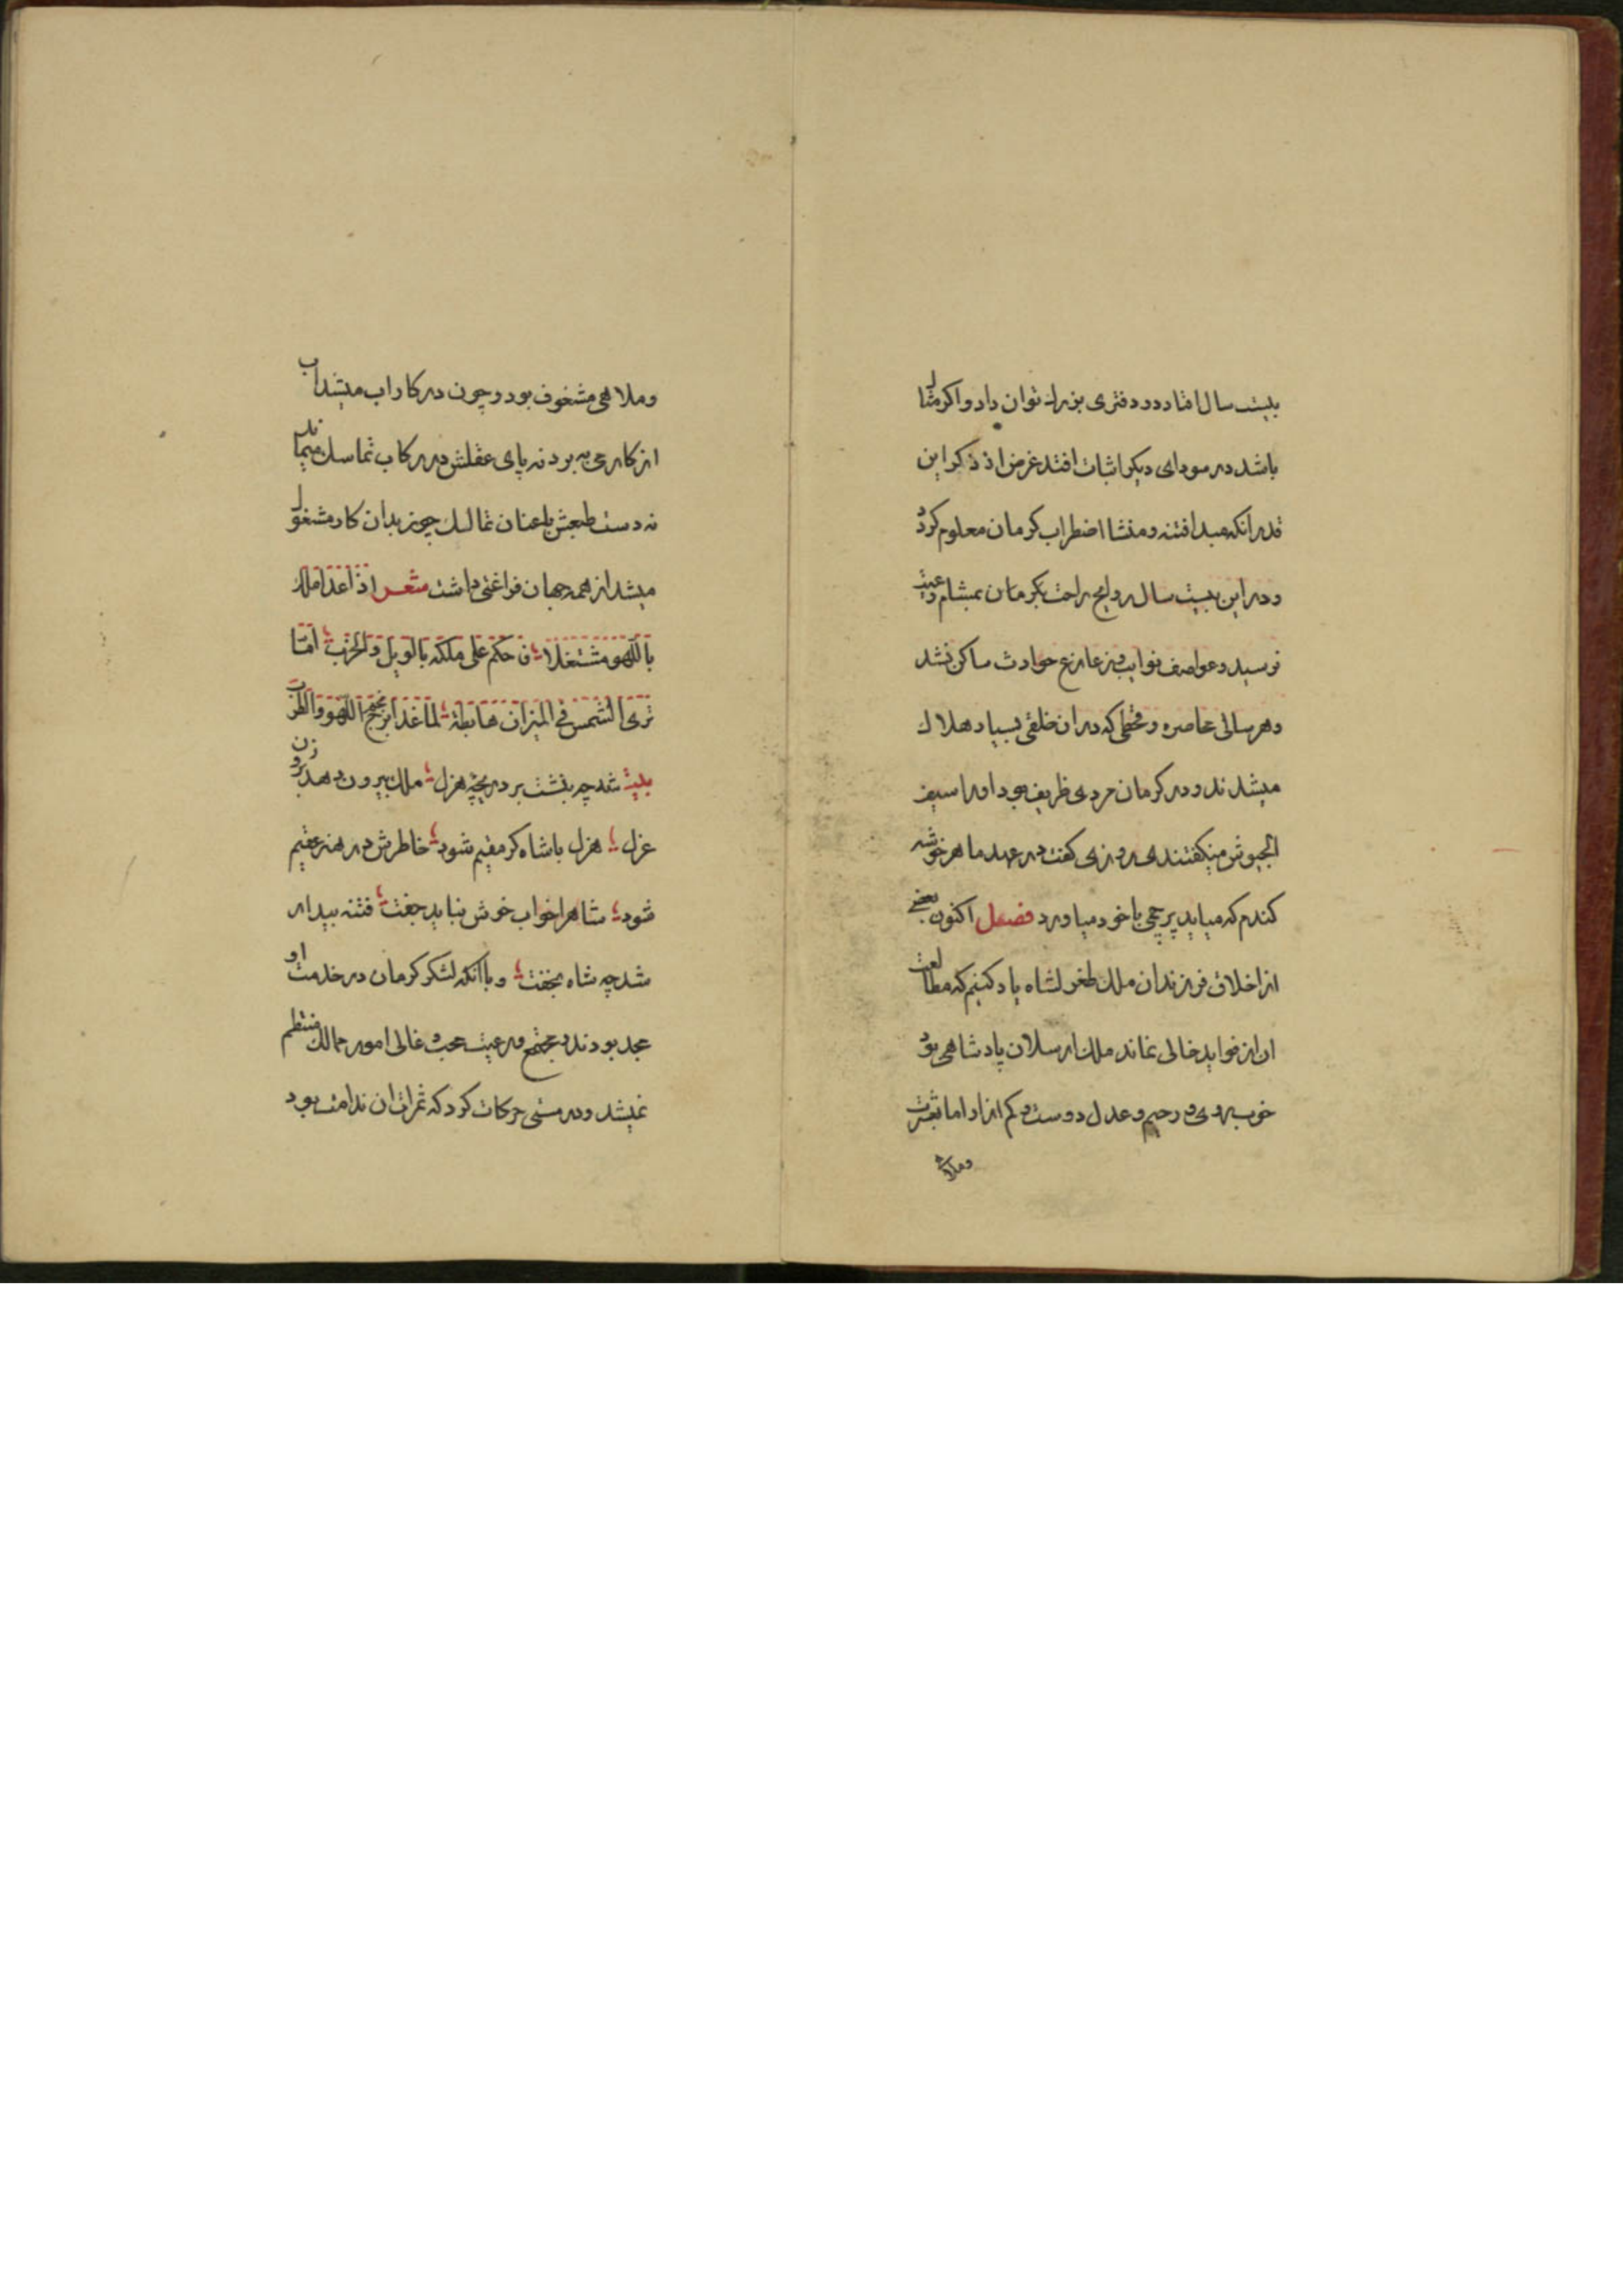 بیست سال افتاد در دفتری بزرك توان داد و اکر مثلا
باشد در سودای دیکر اثبات افتد غرض از ذکر این
قدر انکه مبدا فتنه و منشا اضطراب کرمان معلوم کردد
و در این بیست سال روایح راحت بکرمان بمشام رعیت
نرسید و عواصف نوایب و زعازع حوادث ساکن نشد
و هر سالی محاصره و قحطی که در ان خلقی بسیار هلاك
میشدند و در کرمان مردی ظریف بود او را سیف
الجیوش میکفتندی روزی کفت در عهد ما هر خوشه
کندم که میاید پرچمی با خود میاورد فصل اکنون بعضی
از اخلاق فرزندان ملك طغرلشاه یاد کنیم که مطالعت
ان از فواید خالی نماند ملك ارسلان پادشاهی بود
خوب روی و رحیم و عدل دوست و کم ازار اما بعشرت
وملاهی
و ملاهی مشغوف بود و چون در کار اب میشد اب
از کار می برد نه پای عقلش در رکاب تماسك میماند
نه دست طبعش با عنان تمالك چون بدان کار مشغول
میشد از همه جهان فراغتی داشت شعر اذا غدا ملك
باللهو مشتغلا فاحکم علی ملکه بالویل والحرب اما
تری الشمس فی المیزان هابطة لما غدا برج نجم اللهو والطرب
بیت شه چه بنشست بر دریچه هزل ملك بیرون دهد برو زن
عزل هزل با شاه کر مقیم شود خاطرش در هنر عقیم
شود شاه را خواب خوش نباید جفت فتنه بیدار
شد چه شاه بخفت و با انکه لشکر کرمان در خدمت او
مجد بودند و مجتمع و رعیت محب غالی امور ممالك منتظم
نمیشد و در مستی حرکات کرد که ثمرات ان ندامت بود